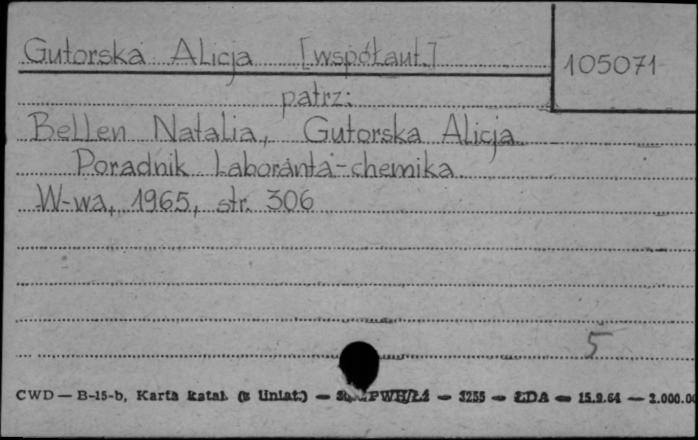 Gutorska Alicja [współaut.]
105071
patrz:
Bellen Natalia, Gutorska Alicja
Poradnik Laboranta-chemika
W-wa, 1965, str. 306
5
CWD — B-15-b, Karta katal. (z liniat.) — PWH/Łź — 3255 — ŁDA — 15.9.64 — 2.000.00